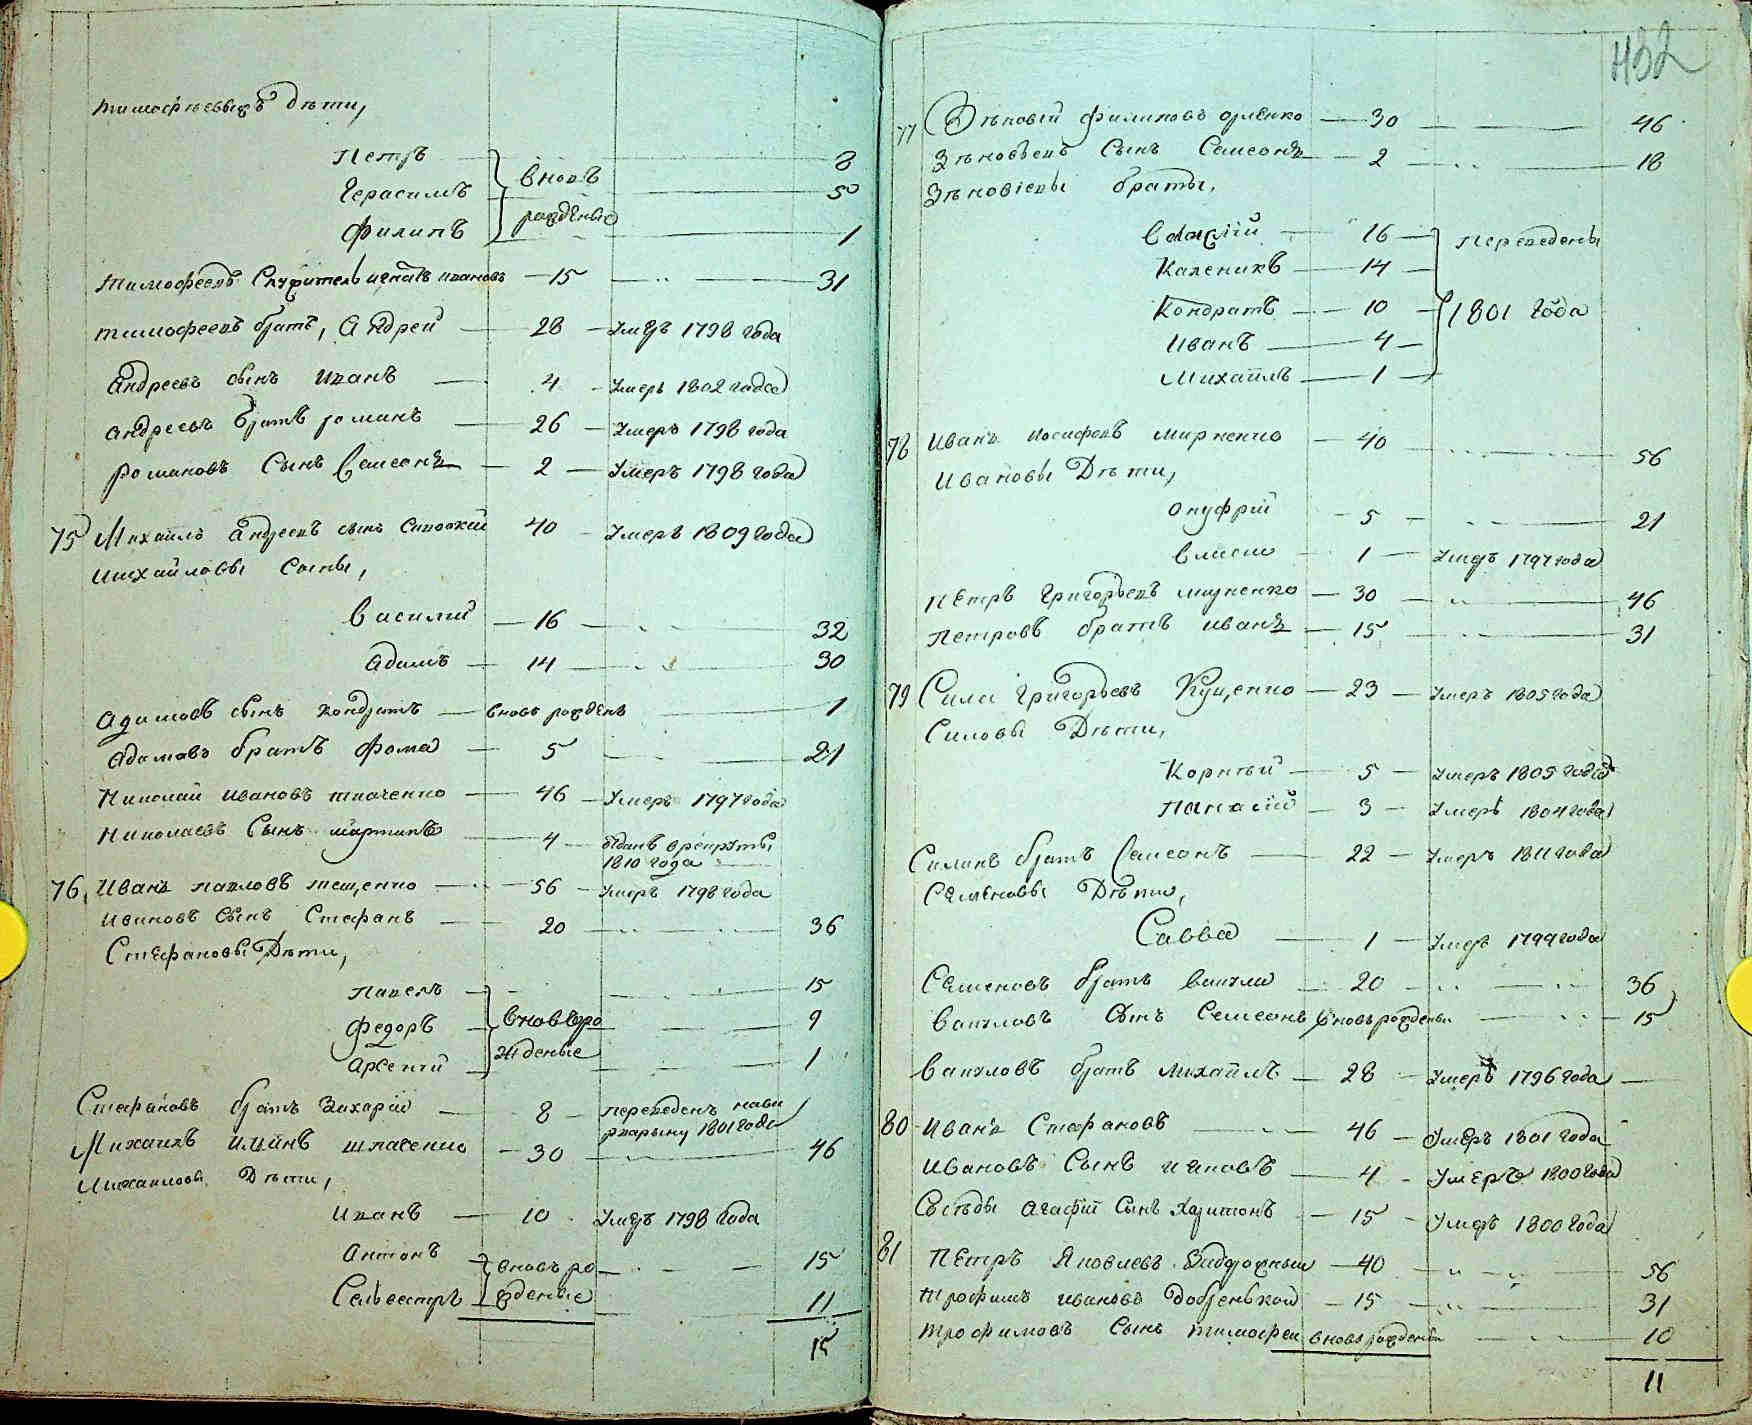 Тимофѣевыхъ дѣти,
Петръ 8
Герасимъ Вновь 5
Филипъ рожденые 1
Тимофеевъ Служитель игнатъ ивановъ 15 31
тимофеевъ братъ, Андрей 28 Умеръ 1798 года
Андреевъ сынъ иванъ 4 Умеръ 1802 года
андреевъ братъ романъ 26 Умеръ 1798 года
романовъ Сынъ Самсонъ 2 Умеръ 1798 года
75 Михайлъ андреевъ сынъ 40 Умеръ 1809 года
михайловы сыны,
Василий 16 32
адамъ 14 30
адамовъ сынъ кондратъ вновь рожденъ 1
адамовъ братъ фома 5 21
Николай ивановъ ткаченко 46 Умеръ 1797 года
Николаевъ Сынъ мартинъ 4 отданъ в рекруты
1810 года
76, Иванъ павловъ тещенко 56 Умеръ 1798 года
ивановъ сынъ Стефанъ 20 36
Стефановы Дѣти,
павелъ 15
Федоръ вновь ро 9
Арсений жденые 1
Стефановъ братъ Захарий 8 переведенъ
1801 года
Михаилъ 30 46
Михаиловы Дѣти,
иванъ 10 Умеръ 1798 года
антонъ вновь ро 15
Селвестръ жденые 11
15
432
77 Зѣновий Филиповъ 30 46
Зѣновьевъ Сынъ Самсонъ 2 18
Зѣновиевы браты,
Василий 16 Переведены
Каленикъ 14
Кондратъ 10 1801 года
Иванъ 4
Михайлъ 1
78 Иванъ иосифовъ мирненко 40 56
Ивановы Дѣти,
Онуфрий 5 21
Власъ 1 Умеръ 1797 года
Петръ Григорьевъ 30 46
Петровъ братъ иванъ 15 31
79 Сила Григорьевъ Куценко 23 Умеръ 1805 года
Силовы Дѣти,
Корнѣй 5 Умеръ 1805 года
Панасий 3 Умеръ 1804 года
Силинъ братъ Самсонъ 22 Умеръ 1811 года
Семеновы Дѣти,
Савва 1 Умеръ 1799 года
Семеновъ братъ Вакула 20 36
Вакуловъ Сынъ Самсонъ вновь рожденъ 15
Вакуловъ братъ Михайлъ 28 Умеръ 1796 года
80 Иванъ Стефановъ 46 Умеръ 1801 года
Ивановъ Сынъ Яковъ 4 Умеръ 1800 года
Сосѣды Агафий Сынъ Харитонъ 15 Умеръ 1800 года
81 Петръ Яковлевъ 40 56
Трофимъ ивановъ добренькой 15 31
Трофимовъ Сынъ тимофей вновь рожденъ 10
11